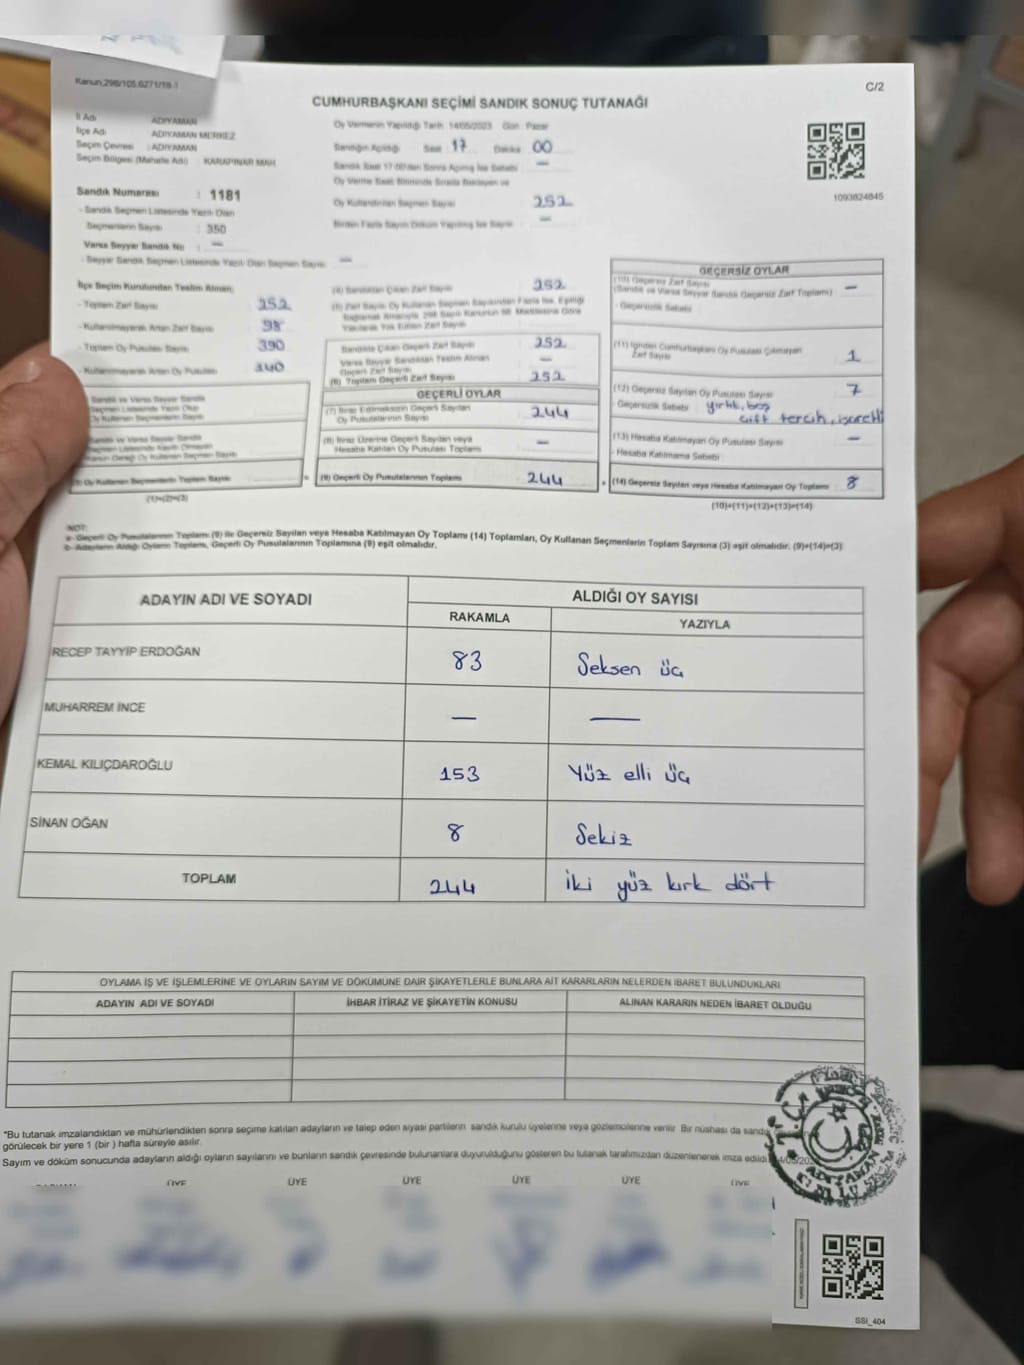 Kanun,298/105,6271/18-1
C/2
CUMHURBAŞKANI SEÇİMİ SANDIK SONUÇ TUTANAĞI
İl Adı ADIYAMAN
İlçe Adı ADIYAMAN MERKEZ
Seçim Çevresi : ADIYAMAN
Seçim Bölgesi (Mahalle Adı) : KARAPINAR MAH.
Oy Vermenin Yapıldığı Tarih 14/05/2023 Gün : Pazar
Sandığın Açıldığı Saat 17 Dakika 00
Sandık Saat 17:00'den Sonra Açılmış İse Sebebi —
Oy Verme Saati Bitiminde Sırada Bekleyen ve
Oy Kullandırılan Seçmen Sayısı 252
Birden Fazla Sayım Döküm Yapılmış İse Sayısı —
1093824845
Sandık Numarası : 1181
- Sandık Seçmen Listesinde Yazılı Olan
Seçmenlerin Sayısı : 350
Varsa Seyyar Sandık No : —
- Seyyar Sandık Seçmen Listesinde Yazılı Olan Seçmen Sayısı —
İlçe Seçim Kurulundan Teslim Alınan;
- Toplam Zarf Sayısı 252
- Kullanılmayarak Artan Zarf Sayısı 98
- Toplam Oy Pusulası Sayısı 390
- Kullanılmayarak Artan Oy Pusulası
Sandık ve Varsa Seyyar Sandık
Seçmen Listesinde Yazılı Olup
Oy Kullanan Seçmenlerin Sayısı
Sandık ve Varsa Seyyar Sandık
(3) Oy Kullanan Seçmenlerin Toplam Sayısı
(1)+(2)=(3)
(4) Sandıktan Çıkan Zarf Sayısı 252
Sandıkta Çıkan Geçerli Zarf Sayısı 252
Varsa Seyyar Sandıktan Teslim Alınan
Geçerli Zarf Sayısı —
(6) Toplam Geçerli Zarf Sayısı 252
GEÇERLİ OYLAR
(7) İtiraz Edilmeksizin Geçerli Sayılan
Oy Pusulasının Sayısı 244
(8) İtiraz Üzerine Geçerli Sayılan veya
Hesaba Katılan Oy Pusulası Toplamı —
(9) Geçerli Oy Pusulalarının Toplamı 244
GEÇERSİZ OYLAR
(10) Geçersiz Zarf Sayısı
(Sandık ve Varsa Seyyar Sandık Geçersiz Zarf Toplamı) —
- Geçersizlik Sebebi :
(11) İçinden Cumhurbaşkanı Oy Pusulası Çıkmayan
Zarf Sayısı 1
(12) Geçersiz Sayılan Oy Pusulası Sayısı 7
- Geçersizlik Sebebi : yırtık, boş
çift tercih, işaretli
(13) Hesaba Katılmayan Oy Pusulası Sayısı —
- Hesaba Katılmama Sebebi :
(14) Geçersiz Sayılan veya Hesaba Katılmayan Oy Toplamı 8
(10)+(11)+(12)+(13)=(14)
NOT:
a- Geçerli Oy Pusulalarının Toplamı (9) ile Geçersiz Sayılan veya Hesaba Katılmayan Oy Toplamı (14) Toplamları, Oy Kullanan Seçmenlerin Toplam Sayısına (3) eşit olmalıdır. (9)+(14)=(3)
b- Adayların Aldığı Oyların Toplamı, Geçerli Oy Pusulalarının Toplamına (9) eşit olmalıdır.
ADAYIN ADI VE SOYADI ALDIĞI OY SAYISI
RAKAMLA YAZIYLA
RECEP TAYYİP ERDOĞAN 83 Seksen üç
MUHARREM İNCE — —
KEMAL KILIÇDAROĞLU 153 Yüz elli üç
SİNAN OĞAN 8 Sekiz
TOPLAM 244 İki yüz kırk dört
OYLAMA İŞ VE İŞLEMLERİNE VE OYLARIN SAYIM VE DÖKÜMÜNE DAİR ŞİKAYETLERLE BUNLARA AİT KARARLARIN NELERDEN İBARET BULUNDUKLARI
ADAYIN ADI VE SOYADI İHBAR İTİRAZ VE ŞİKAYETİN KONUSU ALINAN KARARIN NEDEN İBARET OLDUĞU
*Bu tutanak imzalandıktan ve mühürlendikten sonra seçime katılan adayların ve talep eden siyasi partilerin sandık kurulu üyelerine veya gözlemcilerine verilir. Bir nüshası da sandık
görülecek bir yere 1 (bir ) hafta süreyle asılır.
Sayım ve döküm sonucunda adayların aldığı oyların sayılarını ve bunların sandık çevresinde bulunanlara duyurulduğunu gösteren bu tutanak tarafımızdan düzenlenerek imza edildi.
ÜYE ÜYE ÜYE ÜYE ÜYE ÜYE
T.C.
ADIYAMAN
SSI_404